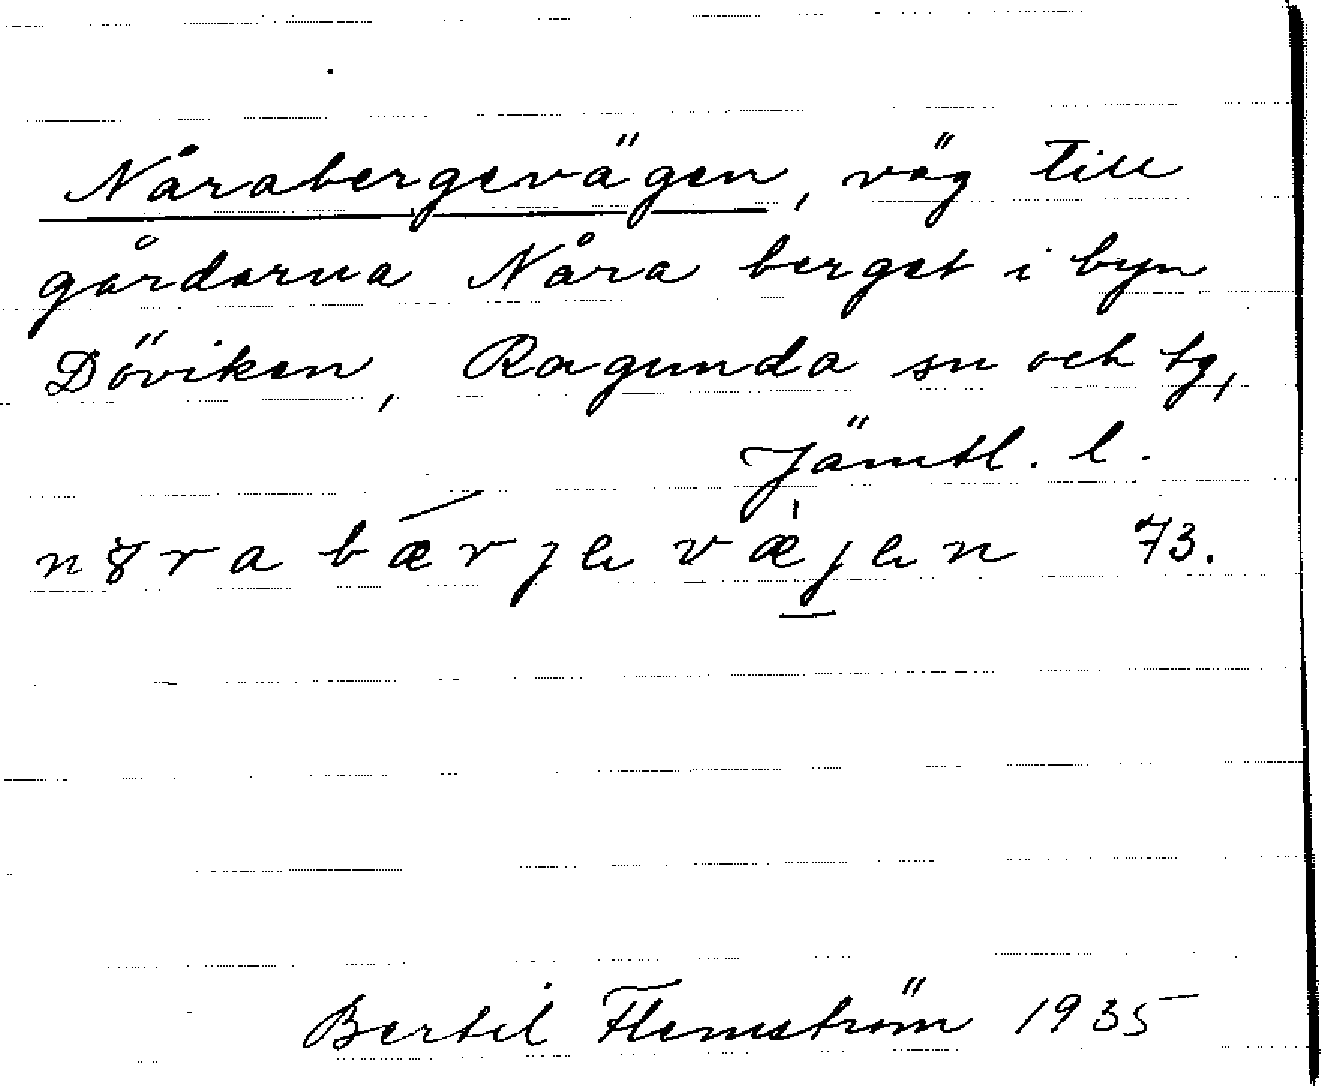 Nårabergevägen, väg till
gårdarna Nåra berget i byn
Döviken, Ragunda sn och tg,
Jämtl. l.
73.
Bertil Flemström 1935